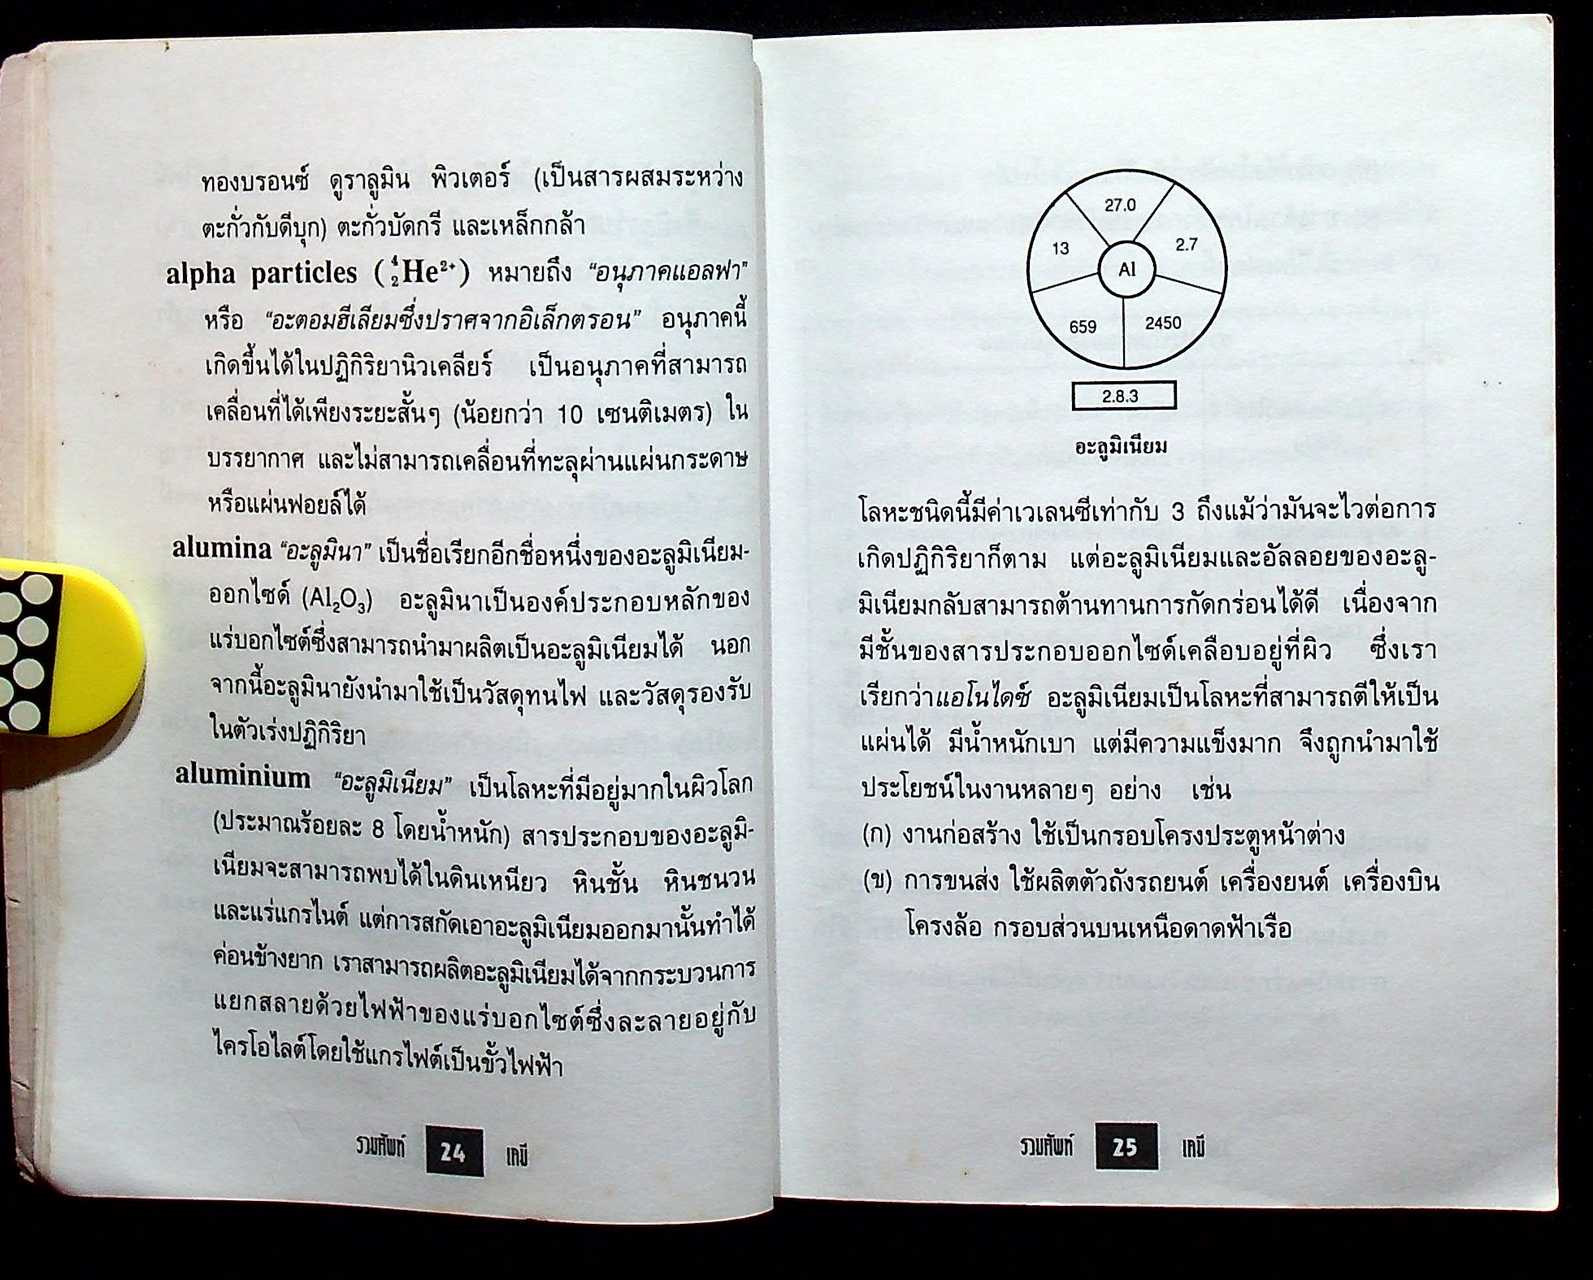 ทองบรอนซ์ ดูราลูมิน พิวเตอร์ (เป็นสารผสมระหว่าง
ตะกั่วกับดีบุก) ตะกั่วบัดกรี และเหล็กกล้า
alpha particles (⁴₂He²⁺) หมายถึง “อนุภาคแอลฟา”
หรือ “อะตอมฮีเลียมซึ่งปราศจากอิเล็กตรอน” อนุภาคนี้
เกิดขึ้นได้ในปฏิกิริยานิวเคลียร์ เป็นอนุภาคที่สามารถ
เคลื่อนที่ได้เพียงระยะสั้นๆ (น้อยกว่า 10 เซนติเมตร) ใน
บรรยากาศ และไม่สามารถเคลื่อนที่ทะลุผ่านแผ่นกระดาษ
หรือแผ่นฟอยล์ได้
alumina “อะลูมินา” เป็นชื่อเรียกอีกชื่อหนึ่งของอะลูมิเนียม-
ออกไซด์ (Al₂O₃) อะลูมินาเป็นองค์ประกอบหลักของ
แร่บอกไซต์ซึ่งสามารถนำมาผลิตเป็นอะลูมิเนียมได้ นอก
จากนี้อะลูมินายังนำมาใช้เป็นวัสดุทนไฟ และวัสดุรองรับ
ในตัวเร่งปฏิกิริยา
aluminium “อะลูมิเนียม” เป็นโลหะที่มีอยู่มากในผิวโลก
(ประมาณร้อยละ 8 โดยน้ำหนัก) สารประกอบของอะลูมิ-
เนียมจะสามารถพบได้ในดินเหนียว หินชั้น หินชนวน
และแร่แกรไนต์ แต่การสกัดเอาอะลูมิเนียมออกมานั้นทำได้
ค่อนข้างยาก เราสามารถผลิตอะลูมิเนียมได้จากกระบวนการ
แยกสลายด้วยไฟฟ้าของแร่บอกไซต์ซึ่งละลายอยู่กับ
ไครโอไลต์โดยใช้แกรไฟต์เป็นขั้วไฟฟ้า
รวมศัพท์ 24 เคมี
27.0
13
2.7
Al
659
2450
2.8.3
อะลูมิเนียม
โลหะชนิดนี้มีค่าเวเลนซีเท่ากับ 3 ถึงแม้ว่ามันจะไวต่อการ
เกิดปฏิกิริยาก็ตาม แต่อะลูมิเนียมและอัลลอยของอะลู-
มิเนียมกลับสามารถต้านทานการกัดกร่อนได้ดี เนื่องจาก
มีชั้นของสารประกอบออกไซด์เคลือบอยู่ที่ผิว ซึ่งเรา
เรียกว่าแอโนไดซ์ อะลูมิเนียมเป็นโลหะที่สามารถตีให้เป็น
แผ่นได้ มีน้ำหนักเบา แต่มีความแข็งมาก จึงถูกนำมาใช้
ประโยชน์ในงานหลายๆ อย่าง เช่น
(ก) งานก่อสร้าง ใช้เป็นกรอบโครงประตูหน้าต่าง
(ข) การขนส่ง ใช้ผลิตตัวถังรถยนต์ เครื่องยนต์ เครื่องบิน
โครงล้อ กรอบส่วนบนเหนือดาดฟ้าเรือ
รวมศัพท์ 25 เคมี